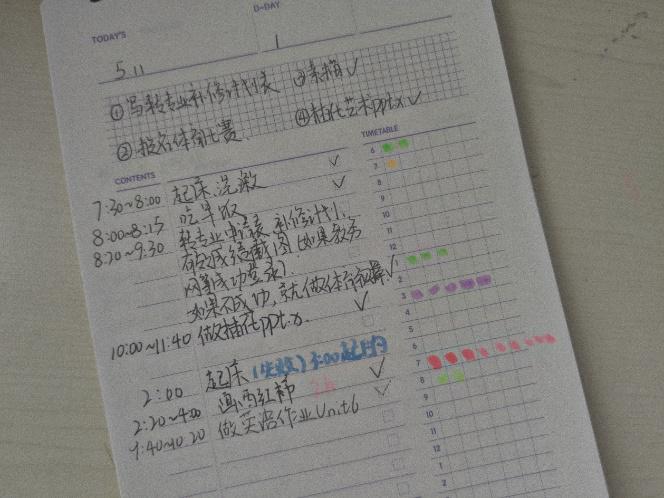 TODAY'S
D-DAY
5.11
1
①写转专业补修计划表 ③表稿✓
②报名体育比赛 ④插花艺术pptx✓
CONTENTS
TIMETABLE
7:30~8:00 起床、洗漱 ✓
8:00~8:15 吃早饭 ✓
8:20~9:30 转专业申请表、补修计划、
有效成绩截图(如果教务
网等成功登录)
如果不成功,就做体育 ✓
10:00~11:40 做插花ppt.x ✓
2:00 起床(失败)
2:20~4:00 画西红柿 ✓
9:40~10:20 做英语作业Unit6 ✓
6
7
8
9
10
11
12
1
2
3
4
5
6
7
8
9
10
11
12
1
2